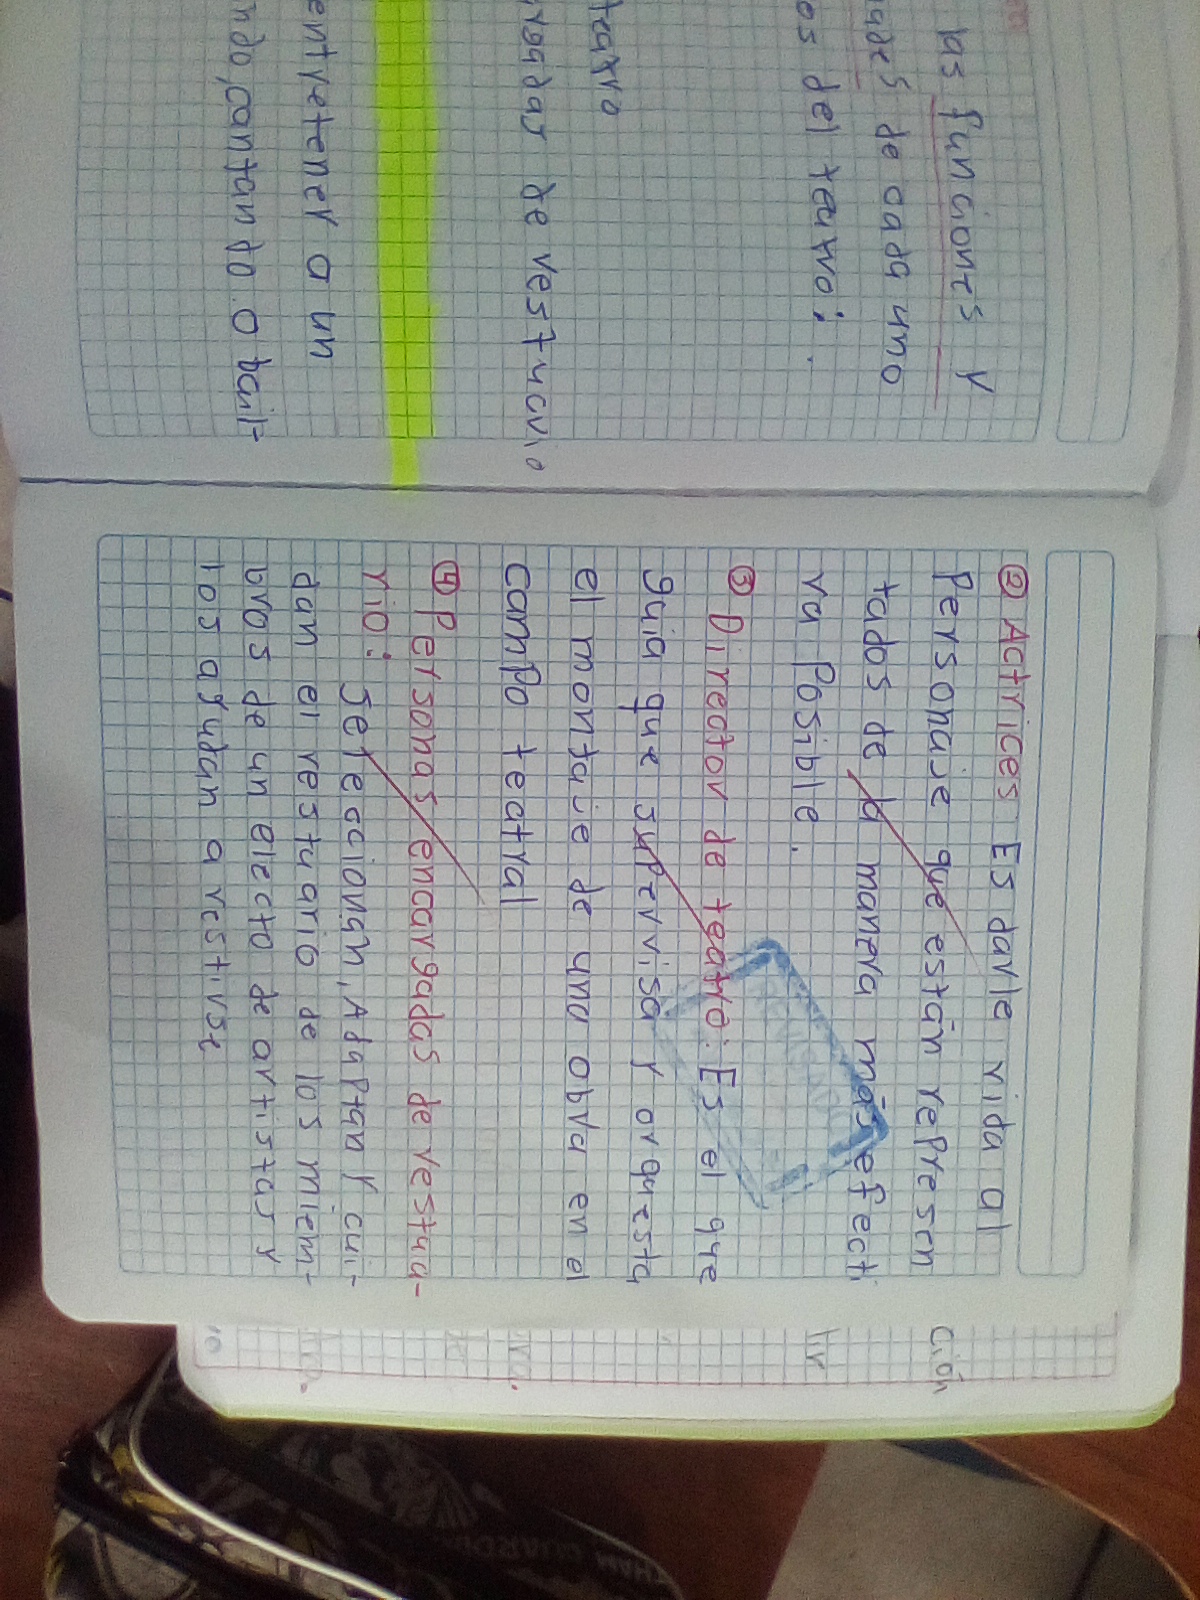 las funciones y
de cada uno
del teatro:
teatro
de vestuario
entretener a un
cantando o bail-
② Actrices Es darle vida al
Personaje que están represen
tados de la manera más efecti
va Posible.
③ Director de teatro: Es el que
guia que supervisa y orquesta
el montaje de uno obra en el
campo teatral
④ Personas encargadas de vestua-
rio: Seleccionan, Adaptan y cui-
dan el vestuario de los miem-
bros de un electo de artistas y
los ayudan a vestirse
REVISADO
ción